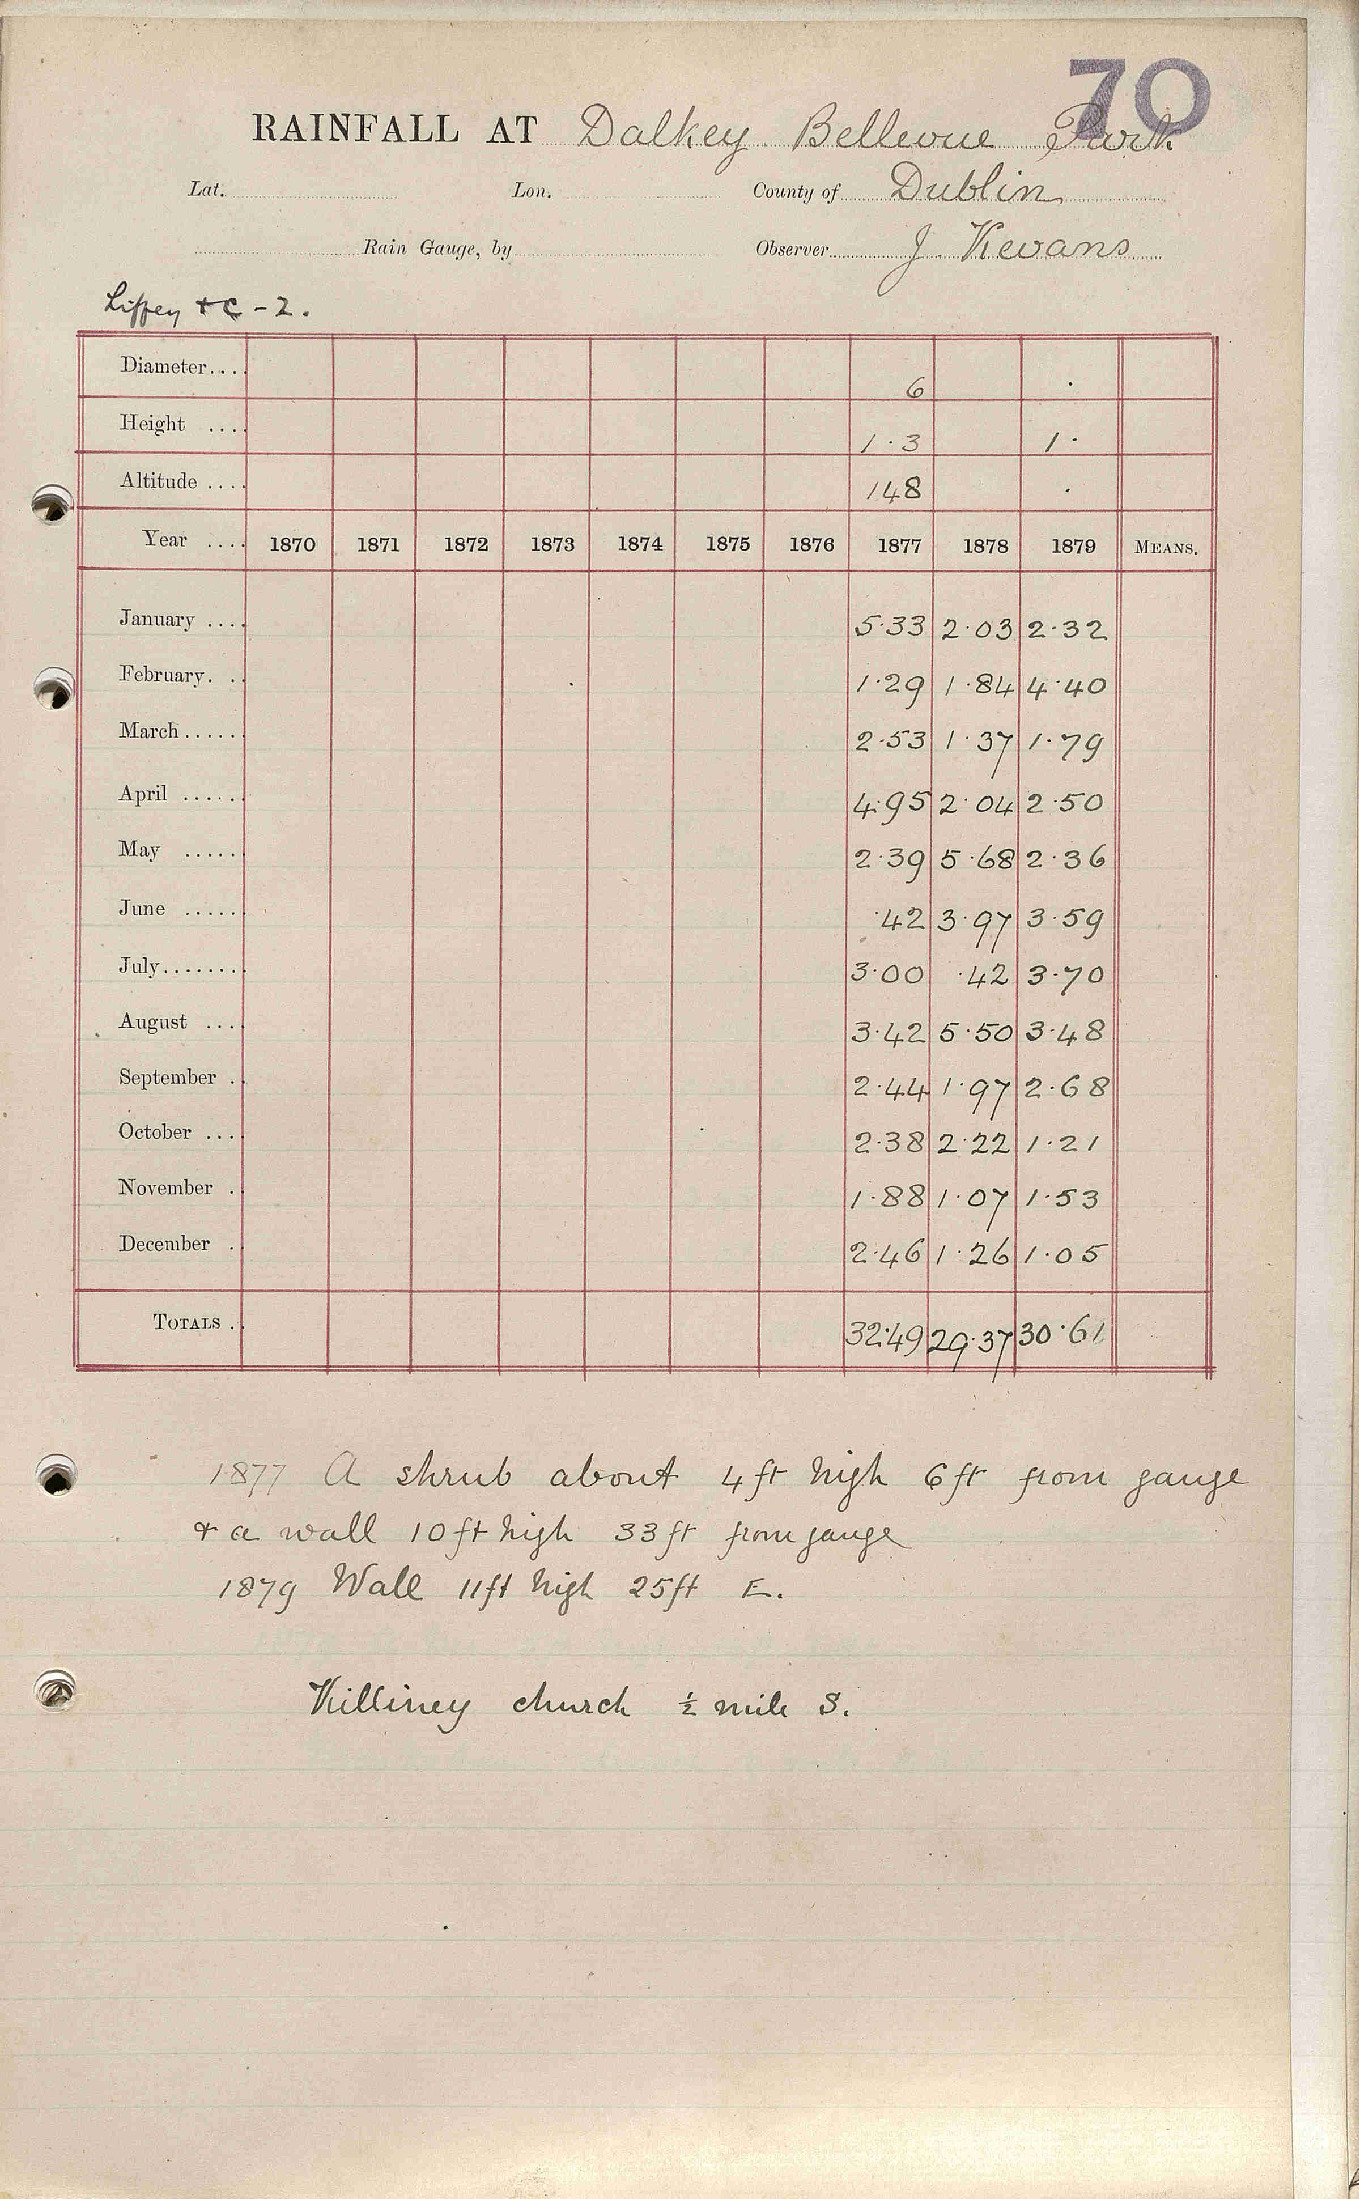 70
RAINFALL AT Dalkey Bellevue Park
Lat. Lon. County of Dublin
Rain Gauge, by Observer J. Kevans
Liffey + C - 2.
Diameter.... 6 .
Height .... 1.3 1.
Altitude .... 148 .
Year .... 1870 1871 1872 1873 1874 1875 1876 1877 1878 1879 MEANS.
January .... 5.33 2.03 2.32
February. .. 1.29 1.84 4.40
March...... 2.53 1.37 1.79
April ...... 4.95 2.04 2.50
May ..... 2.39 5.68 2.36
June ...... .42 3.97 3.59
July........ 3.00 .42 3.70
August .... 3.42 5.50 3.48
September .. 2.44 1.97 2.68
October .... 2.38 2.22 1.21
November .. 1.88 1.07 1.53
December .. 2.46 1.26 1.05
TOTALS .. 32.49 29.37 30.61
1877 A shrub about 4ft high 6ft from gauge
& a wall 10ft high 33ft from gauge
1879 Wall 11ft high 25ft E.
Killiney church ½ mile S.